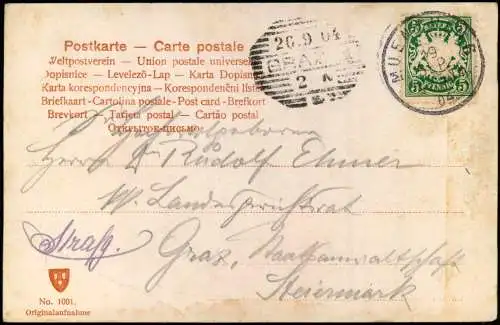 Postkarte – Carte postale
Weltpostverein – Union postale universelle
Dopisnice – Levelező-Lap – Karta Dopisnia
Karta korespondencyjna – Korespondenční lístek
Briefkart-Cartolina postale-Post card-Brefkort
Brevkort – Tarjeta postal – Cartão postal
ОТКРЫТОЕ ПИСЬМО
26.9.04
GRAZ
2
5 5
PFENNIG
Hochwohlgeboren
Herrn Dr Rudolf Ehmer
k. k. Landesgerichtsrat
Graz, Staatsanwaltschaft
Steiermark
No. 1001.
Originalaufnahme